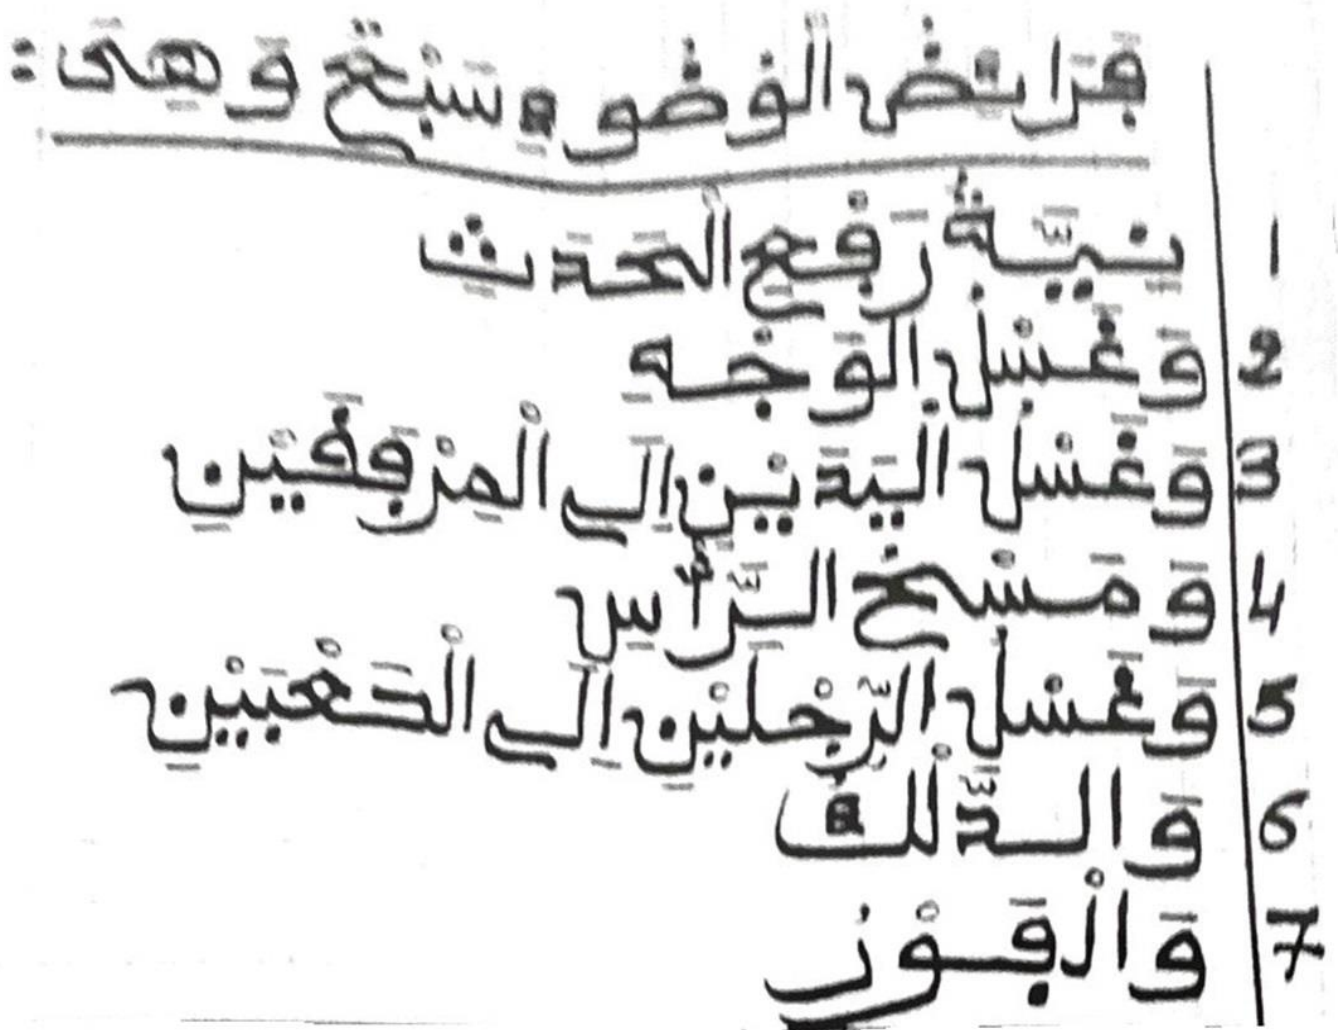 فَرَائِضُ الْوُضُوءِ سَبْعٌ وَهِىَ:
1 نِيَّةُ رَفْعِ الْحَدَثِ
2 وَغَسْلُ الْوَجْهِ
3 وَغَسْلُ الْيَدَيْنِ إِلَى الْمِرْفَقَيْنِ
4 وَمَسْحُ الرَّأْسِ
5 وَغَسْلُ الرِّجْلَيْنِ إِلَى الْكَعْبَيْنِ
6 وَالدَّلْكُ
7 وَالْفَوْرُ